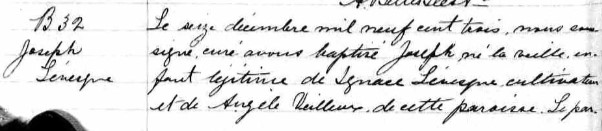 B 32
Joseph
Lévesque
Le seize décembre mil neuf cent trois, nous sous
signé, curé avons baptisé Joseph, né la veille, en-
fant légitime de Ignace Lévesque, cultivateur
et de Angèle Veilleux, de cette paroisse. Le par-